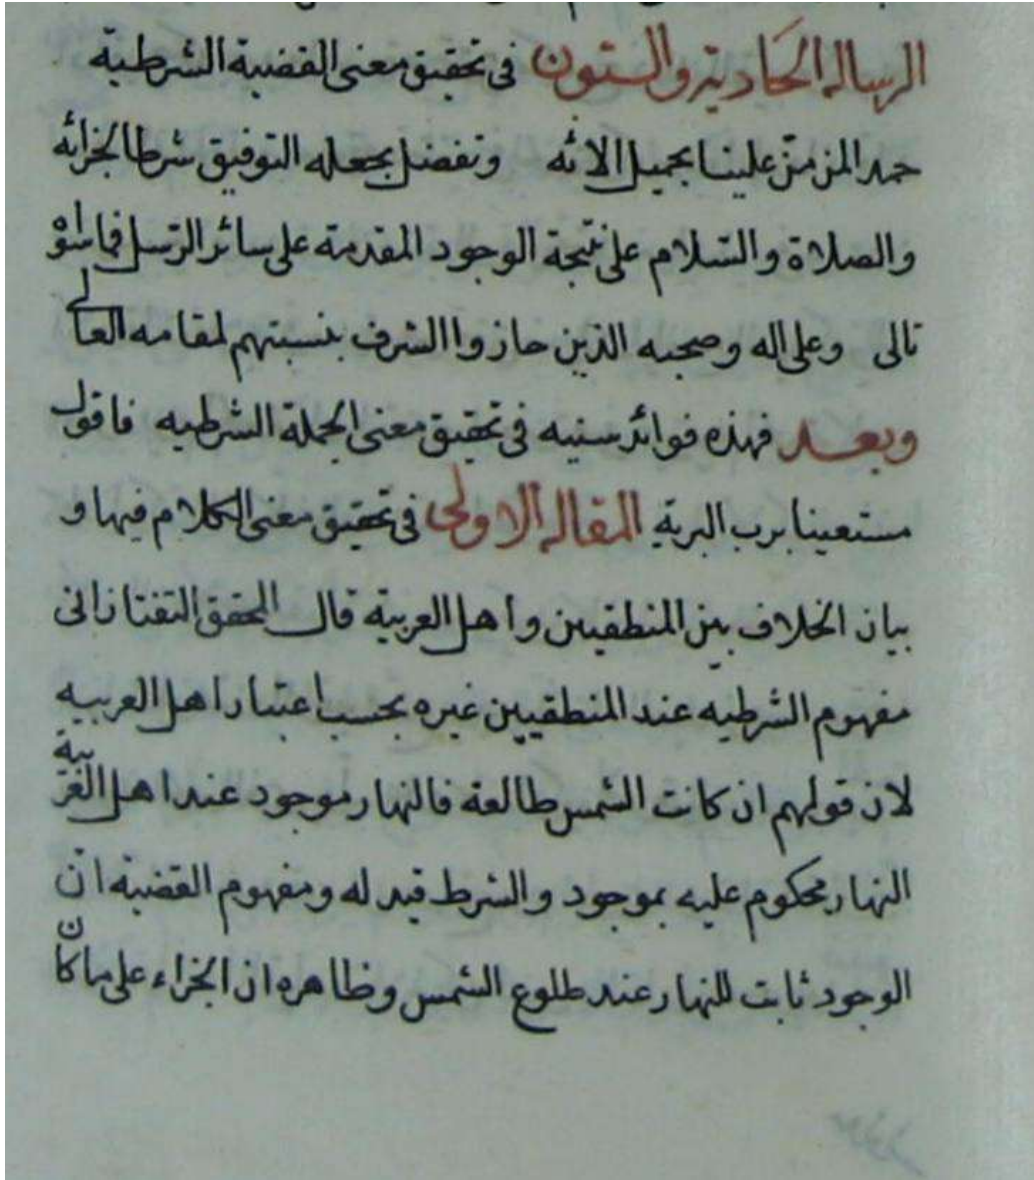 الرسالة الحادية والستون في تحقيق معنى القضية الشرطية
حمدا لمن منّ علينا بجميل الائه وتفضل بجعله التوفيق شرطا لجزائه
والصلاة والسّلام على نتيجة الوجود المقدمة على سائر الرّسل فما سواه
تالى وعلى اله وصحبه الذين حازوا الشرف بنسبتهم لمقامه العالى
وبعد فهذه فوائد سنيه في تحقيق معنى الجملة الشرطيه فاقول
مستعينا برب البرية المقالة الاولى في تحقيق معنى الكلام فيها و
بيان الخلاف بين المنطقيين واهل العربية قال المحقق التفتازانى
مفهوم الشرطيه عند المنطقيين غيره بحسب اعتبار اهل العربيه
لان قولهم ان كانت الشمس طالعة فالنهار موجود عند اهل العربية
النهار محكوم عليه بموجود والشرط قيد له ومفهوم القضية انّ
الوجود ثابت للنهار عند طلوع الشمس وظاهره ان الجزاء على ما كان